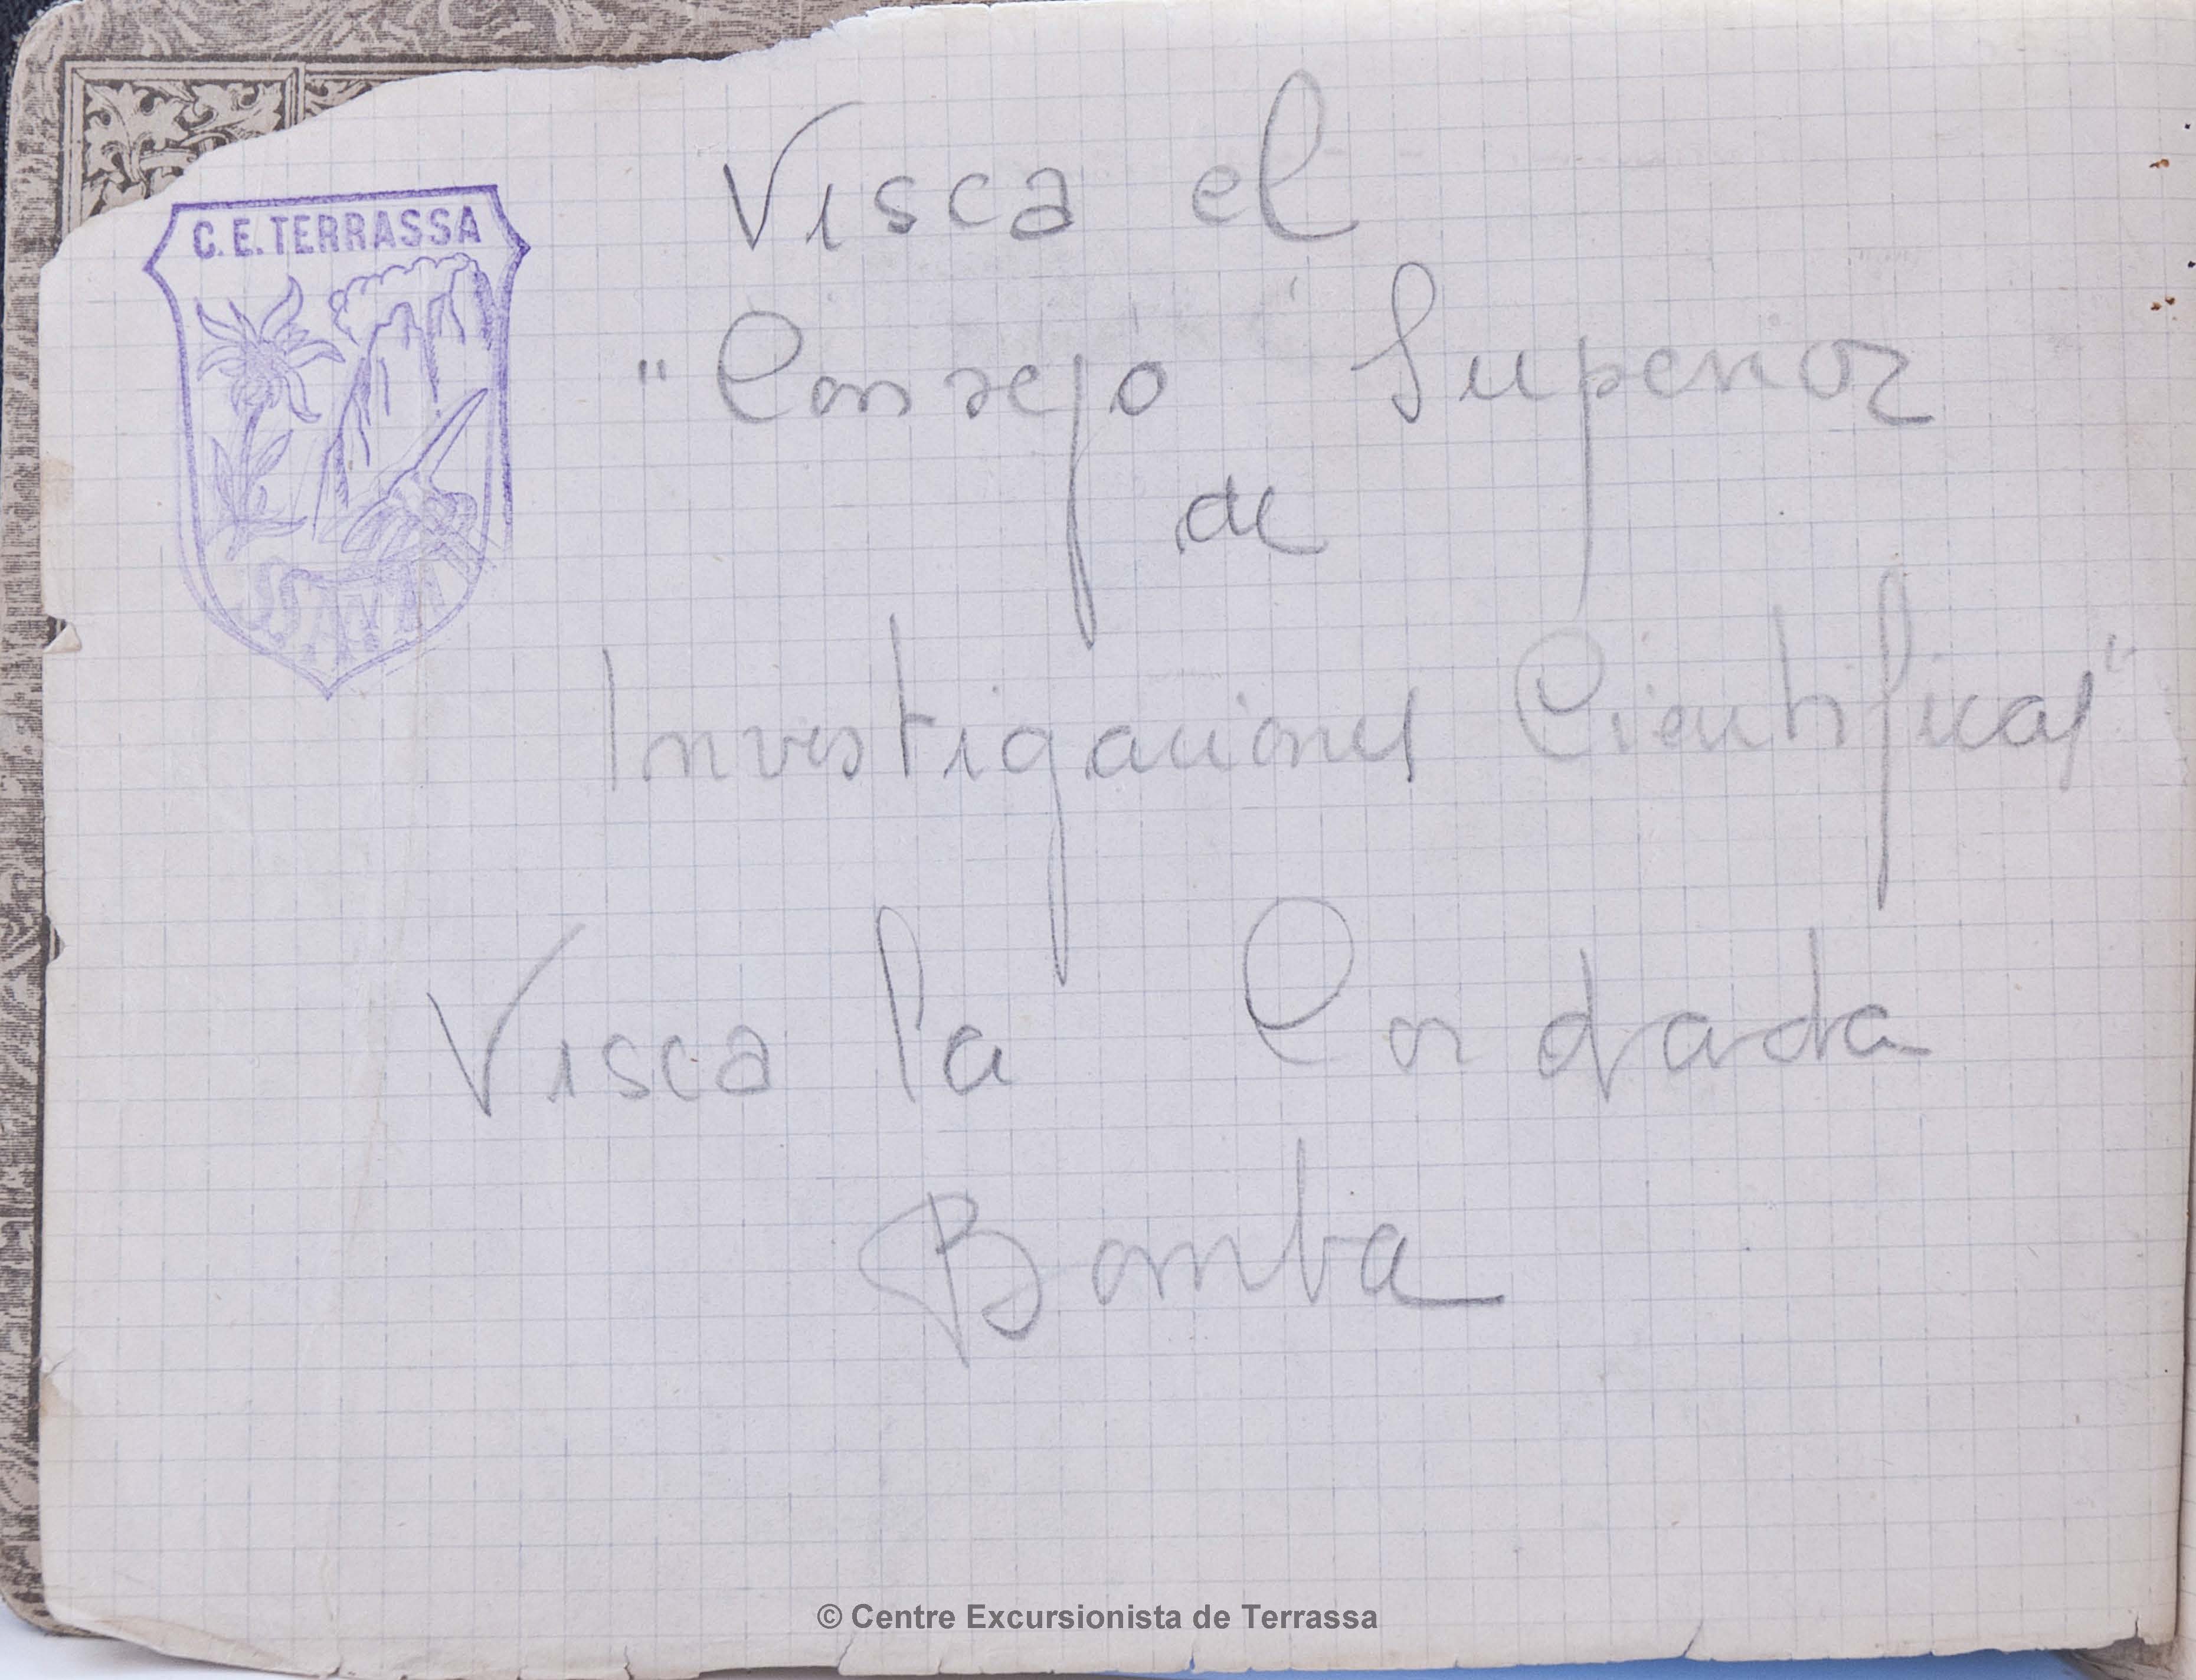 C. E. TERRASSA
Visca el
"Consejo Superior
de
Investigaciones Cientificas"
Visca la Cordada
Bomba
© Centre Excursionista de Terrassa